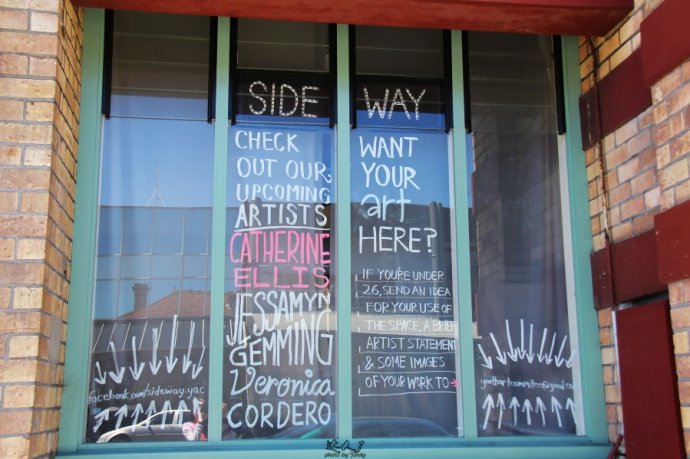 SIDE WAY
CHECK
OUT OUR
UPCOMING
ARTISTS
CATHERINE
ELLIS
JESSAMYN
GEMMING
Veronica
CORDERO
WANT
YOUR
art
HERE?
IF YOU'RE UNDER
26, SEND AN IDEA
FOR YOUR USE OF
THE SPACE, A BRIEF
ARTIST STATEMENT
& SOME IMAGES
OF YOUR WORK TO
facebook.com/sideway.yac
photo by